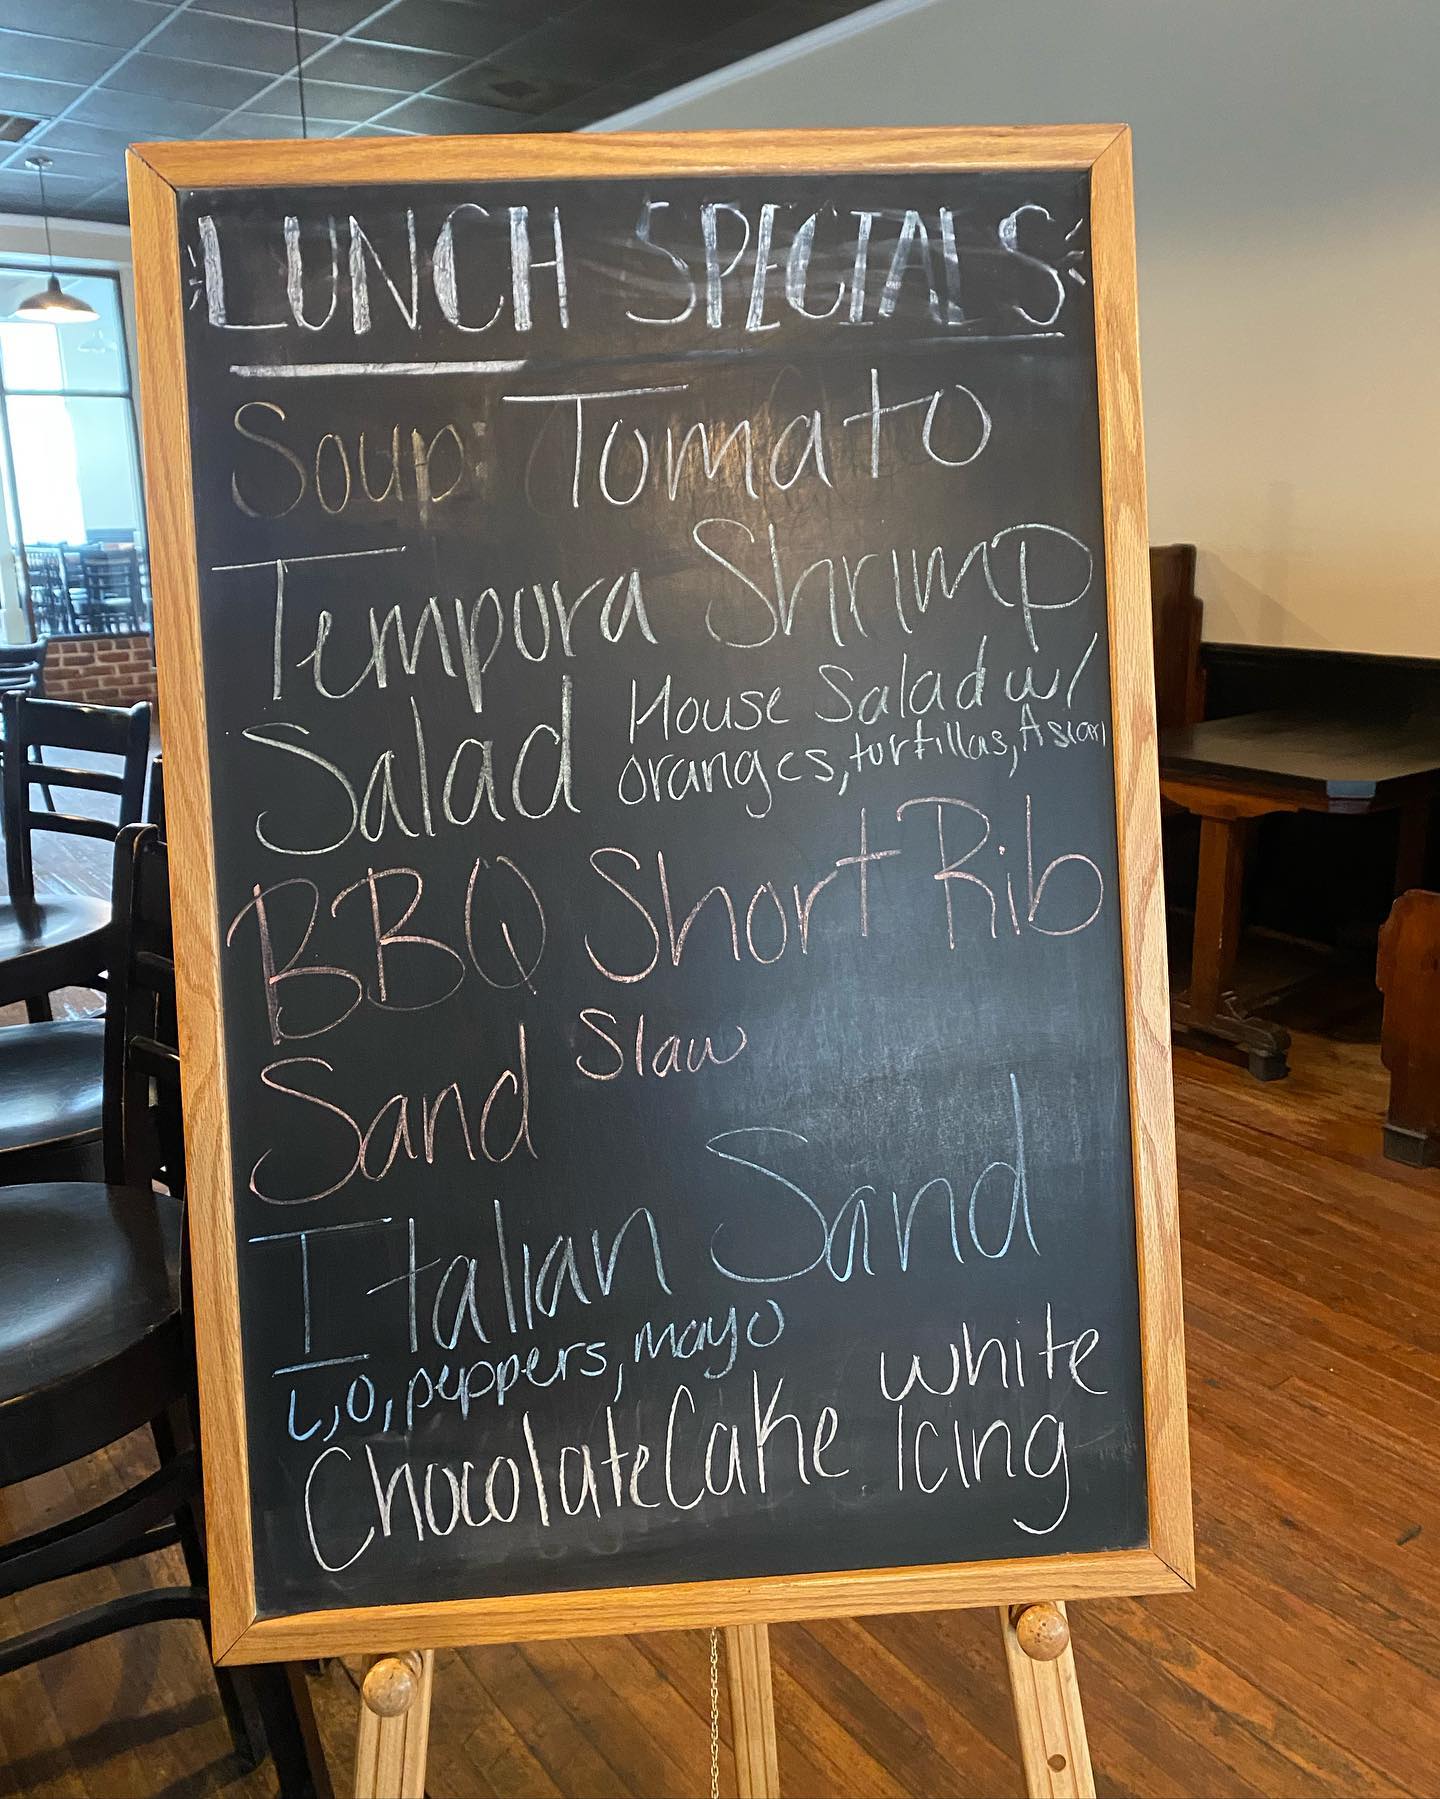 LUNCH SPECIALS
Soup Tomato
Tempura Shrimp
Salad House Salad w/
oranges, tortillas, Asian
BBQ Short Rib
Sand Slaw
Italian Sand
L, O, peppers, mayo
Chocolate Cake white
Icing